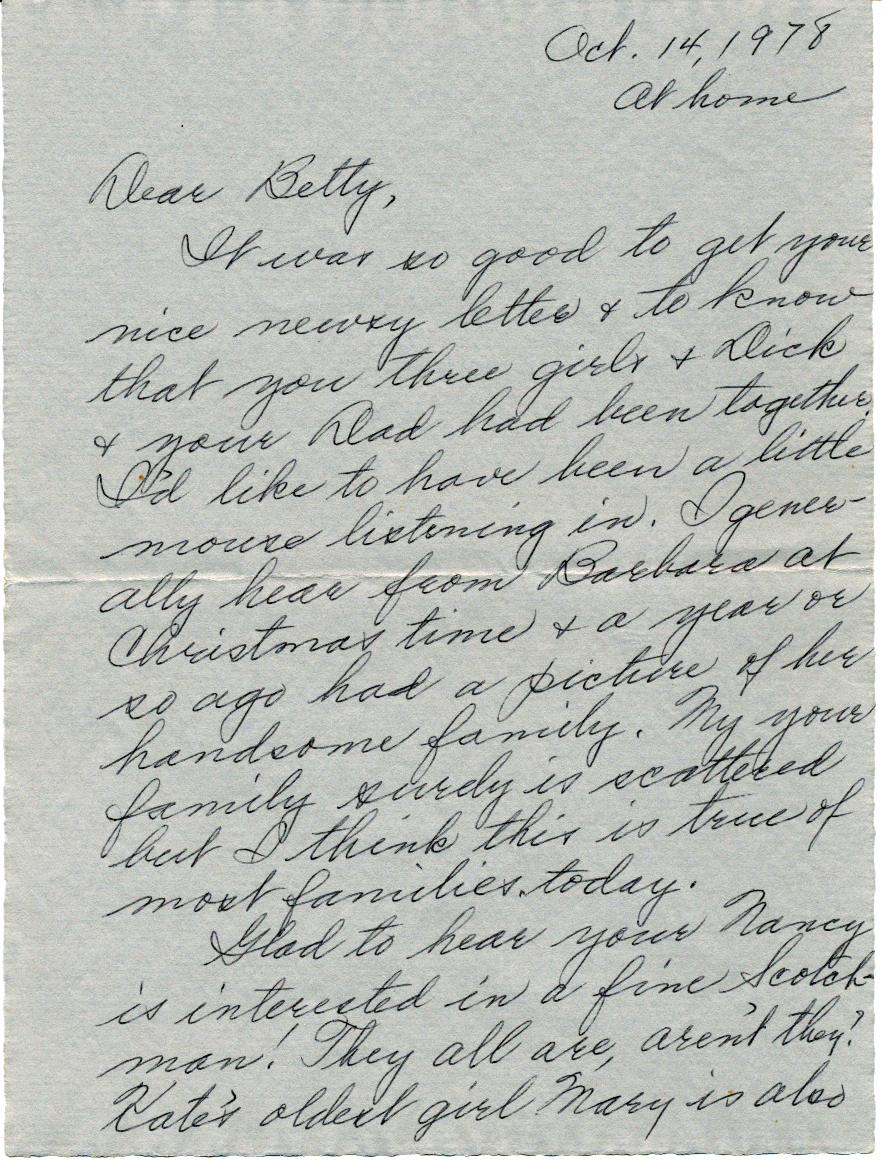 Oct. 14, 1978
At home
Dear Betty,
It was so good to get your
nice newsy letter & to know
that you three girls & Dick
& your Dad had been together.
I'd like to have been a little
mouse listening in. I gener-
ally hear from Barbara at
Christmas time & a year or
so ago had a picture of her
handsome family. My your
family surely is scattered
but I think this is true of
most families today.
Glad to hear your Nancy
is interested in a fine Scotch-
man! They all are, aren't they?
Kate's oldest girl Mary is also